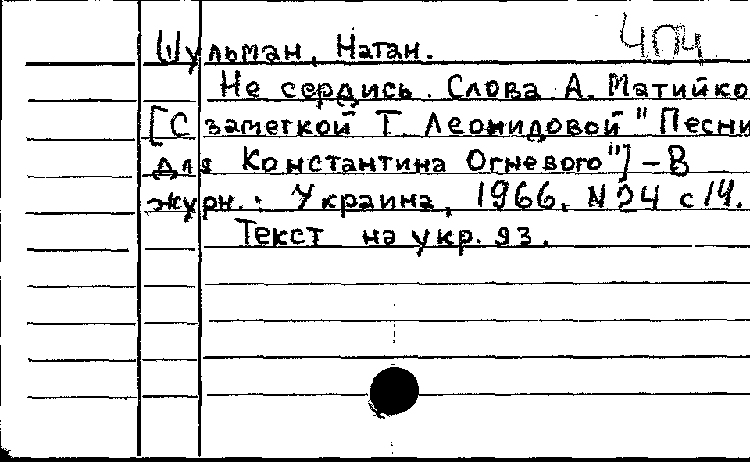 4п4
Шульман, Натан.
Не сердись. Слова А. Матийко
[С заметкой Т. Леонидовой "Песни
для Константина Огневого"] – В
журн.: Украина, 1966, №24 с 14.
Текст на укр. яз.